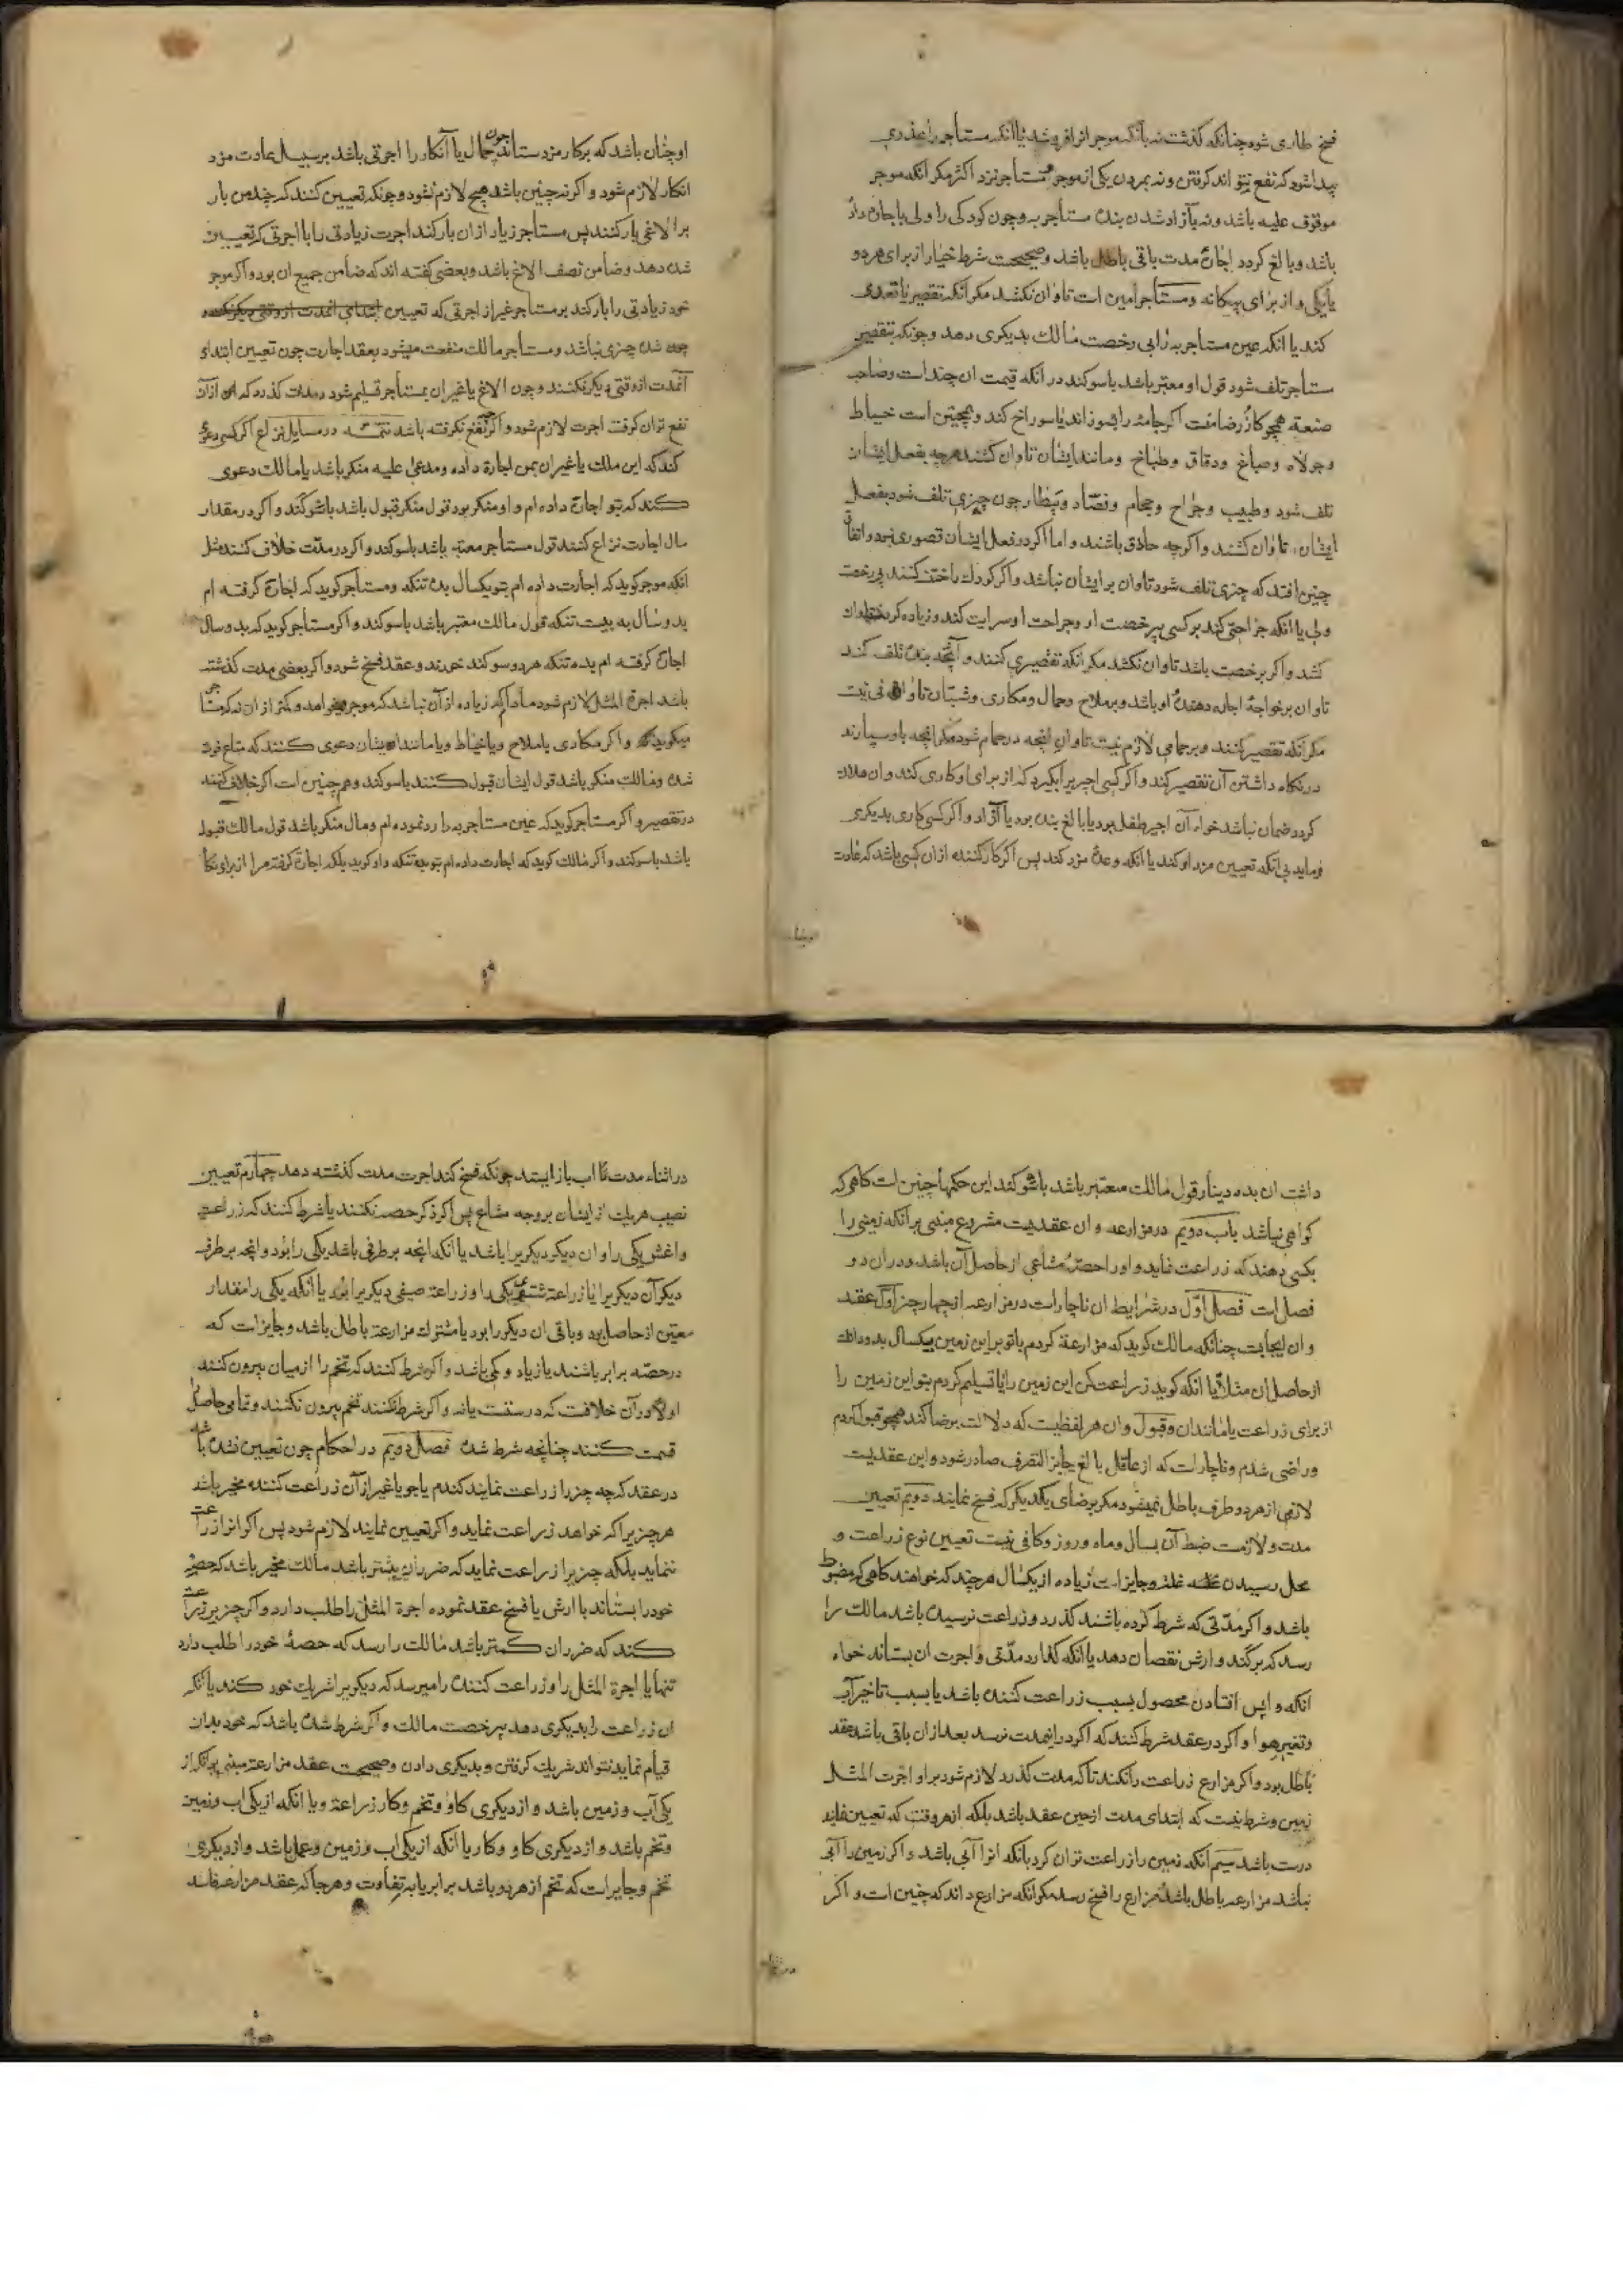 فسخ طاری شود چنانکه کذشت نه بآنکه موجر انرا فروشد یا آنکه مستأجر را عذری
پیدا شود که نفع نتواند کرفتن ونه بمردن یکی از موجر و مستأجر نزد اکثر مکر آنکه موجر
موقوف علیه باشد ونه بآزاد شدن بنده مستأجر به وچون کودکی را ولی باجاره داده
باشد وبالغ کردد اجارهٔ مدت باقی باطل باشد وصحیحست شرط خیار از برای هردو
یا یکی و از برای بیکانه ومستأجر امین است تاوان نکشد مکر آنکه تقصیر یا تعدی
کند یا آنکه عین مستأجر به را بی رخصت مالک بدیکری دهد وچونکه بتقصیر
مستأجر تلف شود قول او معتبر باشد باسوکند در آنکه قیمت ان چند است وصاحب
صنعة همچو کازر ضامنست اکر جامه را بسوزاند یا سوراخ کند وهمچنین است خیاط
وجولاه وصباغ ودقاق وطباخ ومانند ایشان تاوان کشند هرچه بفعل ایشان
تلف شود وطبیب وجراح وحجام وفصّاد وبیطار چون چیزی تلف شود بفعل
ایشان تاوان کشند واکرچه حاذق باشند واما اکر در فعل ایشان قصوری نبود واتفاق
چنین افتد که چیزی تلف شود تاوان بر ایشان نباشد واکر کودک را ختنه کنند بی رخصت
ولی یا آنکه جراحتی کند بر کسی بی رخصت او وجراحت او سرایت کند وزیاده کردد تاوان
کشد واکر برخصت باشد تاوان نکشد مکر آنکه تقصیری کنند وآنچه بنده تلف کند
تاوان بر خواجهٔ اجاره دهندهٔ او باشد وبر ملاح وحمال ومکاری وشبان تاوانی نیست
مکر آنکه تقصیر کنند وبر حمامی لازم نیست تاوان آنچه در حمام شود مکر آنچه باو سپارند
در نکاه داشتن آن تقصیر کند واکر کسی اجیری را بکیرد که از برای او کاری کند وان هلاک
کردد ضمان نباشد خواه آن اجیر طفل بود یا بالغ بنده بود یا آزاد واکر کسی کاری بدیکری
فرماید بی آنکه تعیین مزد او کند یا آنکه وعدهٔ مزد کند پس اکر کار کننده از ان کسی باشد که عادت
او چنان باشد که بر کار مزد ستاند چون حمال یا آنکار را اجرتی باشد بر سبیل عادت مزد
انکار لازم شود واکر نه چنین باشد هیچ لازم نشود وچونکه تعیین کنند که چند من بار
بر الاغی بار کنند پس مستأجر زیاد از ان بار کند اجرت زیادتی را با اجرتی که تعیین
شده دهد وضامن نصف الاغ باشد وبعضی کفته اند که ضامن جمیع ان بود واکر موجر
خود زیادتی را بار کند بر مستاجر غیر از اجرتی که تعیین ابتدای انمدت از وقتی دیکر نکنند
چون شده چیزی نباشد ومستأجر مالک منفعت میشود بعقد اجارت چون تعیین ابتداء
آنمدت از وقتی دیکر نکنند وچون الاغ یا غیر ان بمستأجر تسلیم شود ومدت کذرد که از آن
نفع توان کرفت اجرت لازم شود واکرچه نفع نکرفته باشد تتمه در مسایل نزاع اکر کسی دعوی
کند که این ملک یا غیر ان بمن اجارة داده ومدعی علیه منکر باشد یا مالک دعوی
کند که بتو اجاره داده ام واو منکر بود قول منکر قبول باشد باسوکند واکر در مقدار
مال اجارت نزاع کنند قول مستأجر معتبر باشد باسوکند واکر در مدّت خلاف کنند مثل
آنکه موجر کوید که اجارت داده ام بتو یکسال بده تنکه ومستأجر کوید که اجاره کرفته ام
بدو سال به بیست تنکه قول مالک معتبر باشد باسوکند واکر مستأجر کوید که بدو سال
اجاره کرفته ام بده تنکه هردو سوکند خورند وعقد فسخ شود واکر بعضی مدت کذشته
باشد اجرة المثل لازم شود مادام که زیاده از آن نباشد که موجر میخواهد وکمتر از ان نه که مستأجر
میکوید واکر مکاری یا ملاح ویا خیاط ویا مانند ایشان دعوی کنند که متاع فوت
شده ومالک منکر باشد قول ایشان قبول کنند باسوکند وهمچنین است اکر خلاف کنند
در تقصیر واکر مستأجر کوید که عین مستأجر به را رد نموده ام ومال منکر باشد قول مالک قبول
باشد باسوکند واکر مالک کوید که اجارت داده ام بتو بده تنکه واو کوید بلکه اجاره کرفته مرا از برای نکاه
داشت ان بده دینار قول مالک معتبر باشد باسوکند این حکمها چنین است کاهی که
کواهی نباشد باب دویم در مزارعه وان عقدیست مشروع مبنی بر آنکه زمینی را
بکسی دهند که زراعت نماید واو را حصهٔ مشاعی از حاصل آن باشد ودر ان دو
فصل است فصل اوّل در شرایط ان ناچار است در مزارعه از چهار چیز اوّل عقد
وان ایجابست چنانکه مالک کوید که مزارعة کردم باتو بر این زمین بیکسال بدو دانک
از حاصل ان مثلاً یا آنکه کوید زراعت کن این زمین را یا تسلیم کردم بتو این زمین را
از برای زراعت یا مانند ان وقبول وان هر لفظیست که دلالت برضا کند همچو قبول کردم
وراضی شدم وناچار است که از عاقل بالغ جایز التصرف صادر شود واین عقدیست
لازمی از هردو طرف باطل نمیشود مکر برضای یکدیکر که فسخ نمایند دویم تعیین
مدت ولازمست ضبط آن بسال وماه وروز وکافی نیست تعیین نوع زراعت و
محل رسیدن غله وجایز است زیاده از یکسال هرچند که خواهند کاهی که مضبوط
باشد واکر مدّتی که شرط کرده باشند کذرد وزراعت نرسیده باشد مالک را
رسد که برکند وارش نقصان دهد یا آنکه کذارد مدّتی واجرت ان بستاند خواه
آنکه واپس افتادن محصول بسبب زراعت کننده باشد یا بسبب تاخیر آب
وتغییر هوا واکر در عقد شرط کنند که اکر در اینمدت نرسد بعد از ان باقی باشد عقد
باطل بود واکر مزارع زراعت را نکند تا که مدت کذرد لازم شود بر او اجرت المثل
زمین وشرط نیست که ابتدای مدت از حین عقد باشد بلکه از هر وقت که تعیین نماید
درست باشد سیم آنکه زمین را زراعت توان کرد بانکه انرا آبی باشد واکر زمین را آبی
نباشد مزارعه باطل باشد مزارع را فسخ رسد مکر آنکه مزارع داند که چنین است واکر
در اثناء مدت آب باز ایستد چونکه فسخ کند اجرت مدت کذشته دهد چهارم تعیین
نصیب هریک از ایشان بر وجه مشاع پس اکر ذکر حصه نکنند یا شرط کنند که زراعت
واغش یکی را وان دیکر دیکریرا باشد یا آنکه آنچه بر طرفی باشد یکی را بود وآنچه بر طرف
دیکر آن دیکریرا یا زراعت شتوی یکی را وزراعة صیفی دیکریرا بود یا آنکه یکی را مقدار
معین از حاصل بود وباقی ان دیکر را بود یا مشترک مزارعة باطل باشد وجایز است که
در حصّه برابر باشند یا زیاد وکم باشد واکر شرط کنند که تخم را از میان بیرون کنند
اولا در آن خلافست که درستست یا نه واکر شرط نکنند تخم بیرون نکنند وتمامی حاصل
قسمت کنند چنانچه شرط شده فصل دویم در احکام چون تعیین نشده باشد
در عقد که چه چیز را زراعت نمایند کندم یا جو یا غیر از آن زراعت کننده مخیر باشد
هر چیزیرا که خواهد زراعت نماید واکر تعیین نمایند لازم شود پس اکر انرا زراعت
ننماید بلکه چیزیرا زراعت نماید که ضرر آن بیشتر باشد مالک مخیر باشد که حصهٔ
خود را بستاند با ارش یا فسخ عقد نموده اجرة المثل را طلب دارد واکر چیزیرا زراعت
کند که ضرر ان کمتر باشد مالک را رسد که حصهٔ خود را طلب دارد
تنها یا اجرة المثل را وزراعت کننده را میرسد که دیکریرا شریک خود کند یا آنکه
ان زراعت را بدیکری دهد بی رخصت مالک واکر شرط شده باشد که خود بدان
قیام نماید نتواند شریک کرفتن وبدیکری دادن وصحیحست عقد مزارعة مبنی بر آنکه از
یکی آب وزمین باشد واز دیکری کاو وتخم وکار زراعة ویا آنکه از یکی آب وزمین
وتخم باشد واز دیکری کاو وکار یا آنکه از یکی آب وزمین وعمل باشد واز دیکری
تخم وجایز است که تخم از هردو باشد برابر یا به تفاوت وهرجا که عقد مزارعه فاسد